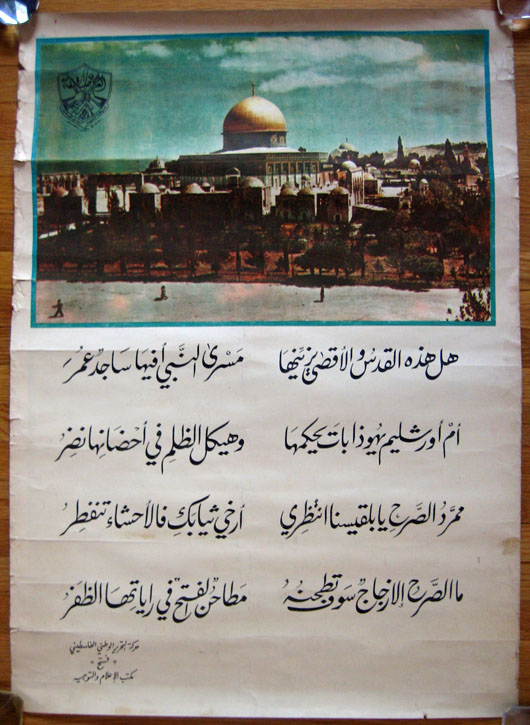 هل هذه القدس والأقصى يزينها مسرى النبي أفيها ساجد عمر
أم أورشليم يهوذا بات يحكمها وهيكل الظلم في أحضانها نضر
ممرد الصرح يا بلقيسنا انتظري أرخي ثيابك فالأحشاء تنفطر
ما الصرح إلا زجاج سوف تطحنه مطاحن الفتح في راياتها الظفر
حركة التحرير الوطني الفلسطيني
"فتح"
مكتب الإعلام والتوجيه